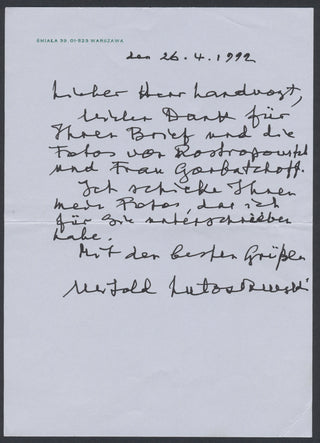 ŚMIAŁA 39 01-523 WARSZAWA
den 26.4.1992
Lieber Herr Landvogt,
Vielen Dank für
Ihren Brief und die
Fotos von Rostropowitsch
und Frau Gorbatschoff.
Ich schicke Ihnen
mein Foto, das ich
für Sie unterschrieben
habe.
Mit den besten Grüßen
Witold Lutosławski